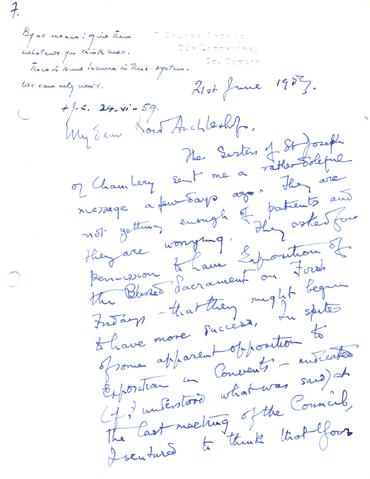 7.
By all means: give them
whatever you think well.
There is some lacuna in their system.
We can only wait.
+ J.C. 24-vi-59.
Dún Laoghaire,
Co. Dublin.
21st June 1959.
My dear Lord Archbishop,
The Sisters of St Joseph
of Chambery sent me a rather doleful
message a few days ago. They are
not getting enough of patients and
they are worrying. They asked for
permission to have Exposition of
the Blessed Sacrament on First
Fridays - that they might begin
to have more success. In spite
of some apparent opposition to
Exposition in Convents - indicated
(if I understood what was said) at
the last meeting of the Council,
I ventured to think that Your